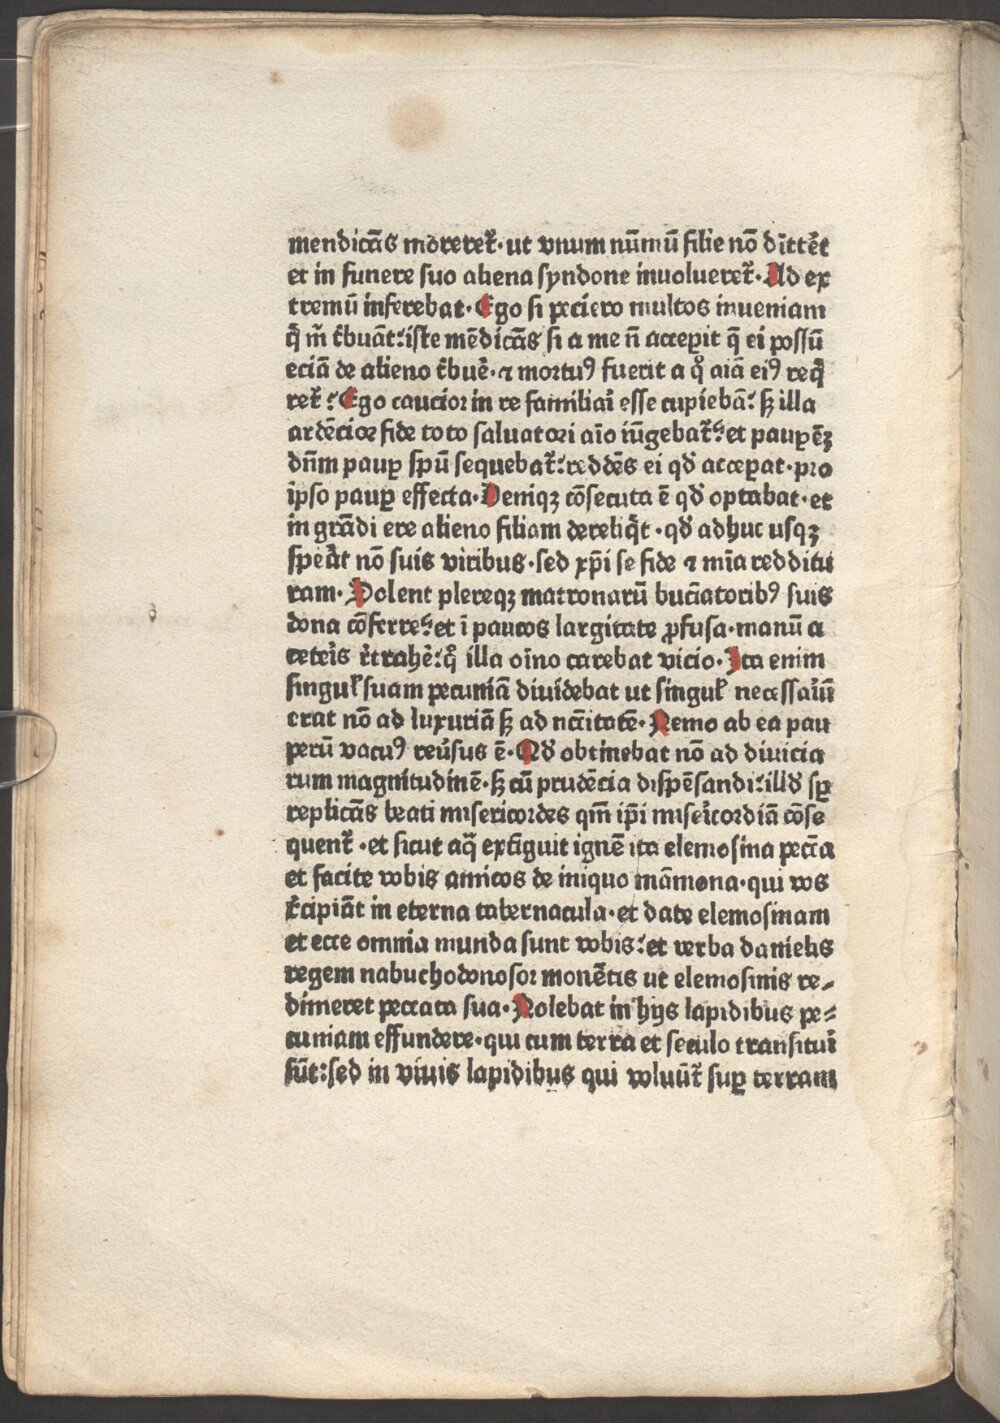 mendicās moreret᷑· ut vnum nūmū filie nō dittēt
et in funere suo aliena syndone inuolueret᷑· Ad ex
tremū inferebat· Ego si peciero multos inueniam
q̄ m̄ t᷑buāt: iste mēdicās si a me n̄ accepit q̄ ei possū
eciā de alieno t᷑buē· ⁊ mortuꝯ fuerit a qͦ aīa eiꝯ reqͥ
ret᷑: Ego caucior in re familiaī esse cupiebā: sꝫ illa
ardēciore fide toto saluatori aīo iūgebat᷑: et paupēꝫ
dn̄m paup̱ spū sequebat᷑: reddēs ei qd̄ acceperat· pro
ipso paup̱ effecta· Deniqꝫ cōsecuta ē qd̄ optabat· et
in grādi ere alieno filiam dereliq̄t· qd̄ adhuc usqꝫ
speāt nō suis viribus· sed xp̄i se fide ⁊ mīa redditu
ram· Solent plereqꝫ matronarū buciatoribꝯ suis
dona cōferre: et ī paucos largitate ꝓfusa· manū a
ceteīs r̄trahē: qͦ illa oīno carebat vicio· Ita enim
singuꝉ suam pecuniā diuidebat ut singuꝉ necessaīū
erat nō ad luxuriā sꝫ ad nc̄citatē· Nemo ab ea pau
perū vacuꝯ reūsus ē· Qd̄ obtinebat nō ad diuicia
rum magnitudinē· sꝫ cū prudēcia dispēsandi: illd̄ sp̱
replicās beati misericordes qm̄ ip̄i miseīcordiā cōse
quent᷑ ·et sicut aq̄ extīguit ignē ita elemosina pecc̄a
et facite vobis amicos de iniquo māmona· qui vos
r̄cipiāt in eterna tabernacula· et date elemosinam
et ecce omnia munda sunt vobis: et verba danielis
regem nabuchodonosor monētis ut elemosinis re⸗
dimeret peccata sua· Nolebat in hijs lapidibus pe⸗
cuniam effundere· qui cum terra et seculo transituī
sūt: sed in viuis lapidibus qui voluūt᷑ sup̱ terram